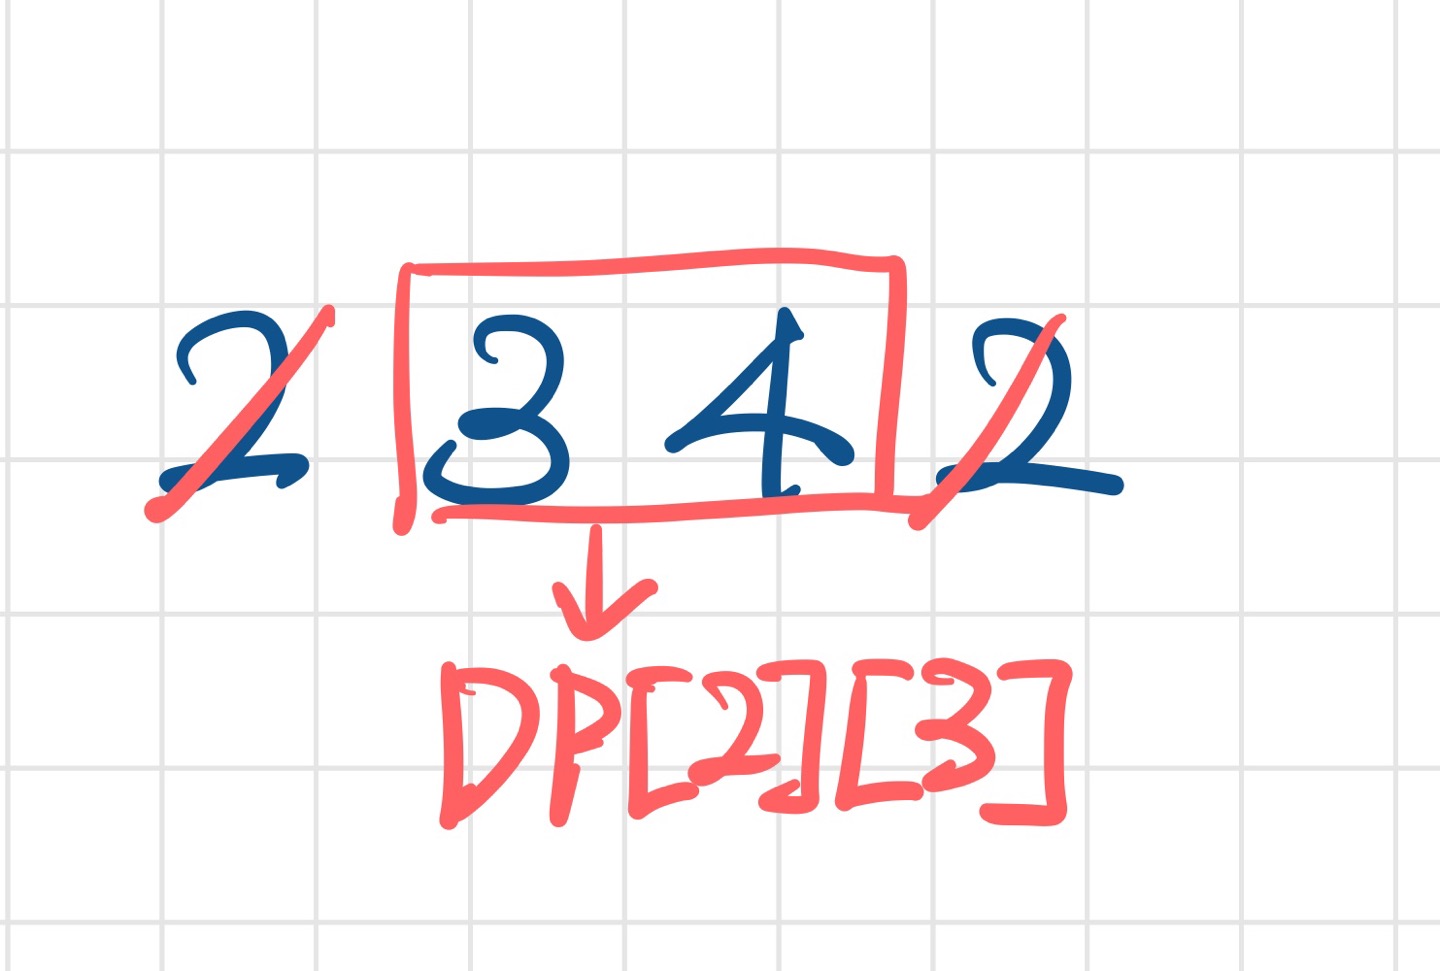 2 3 4 2
DP[2][3]